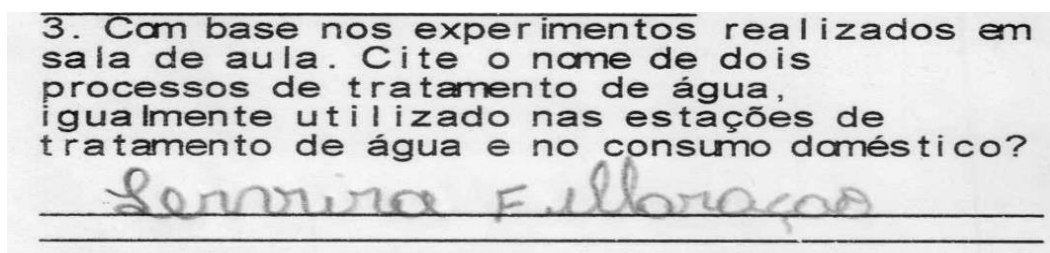 3. Com base nos experimentos realizados em
sala de aula. Cite o nome de dois
processos de tratamento de água,
igualmente utilizado nas estações de
tratamento de água e no consumo doméstico?